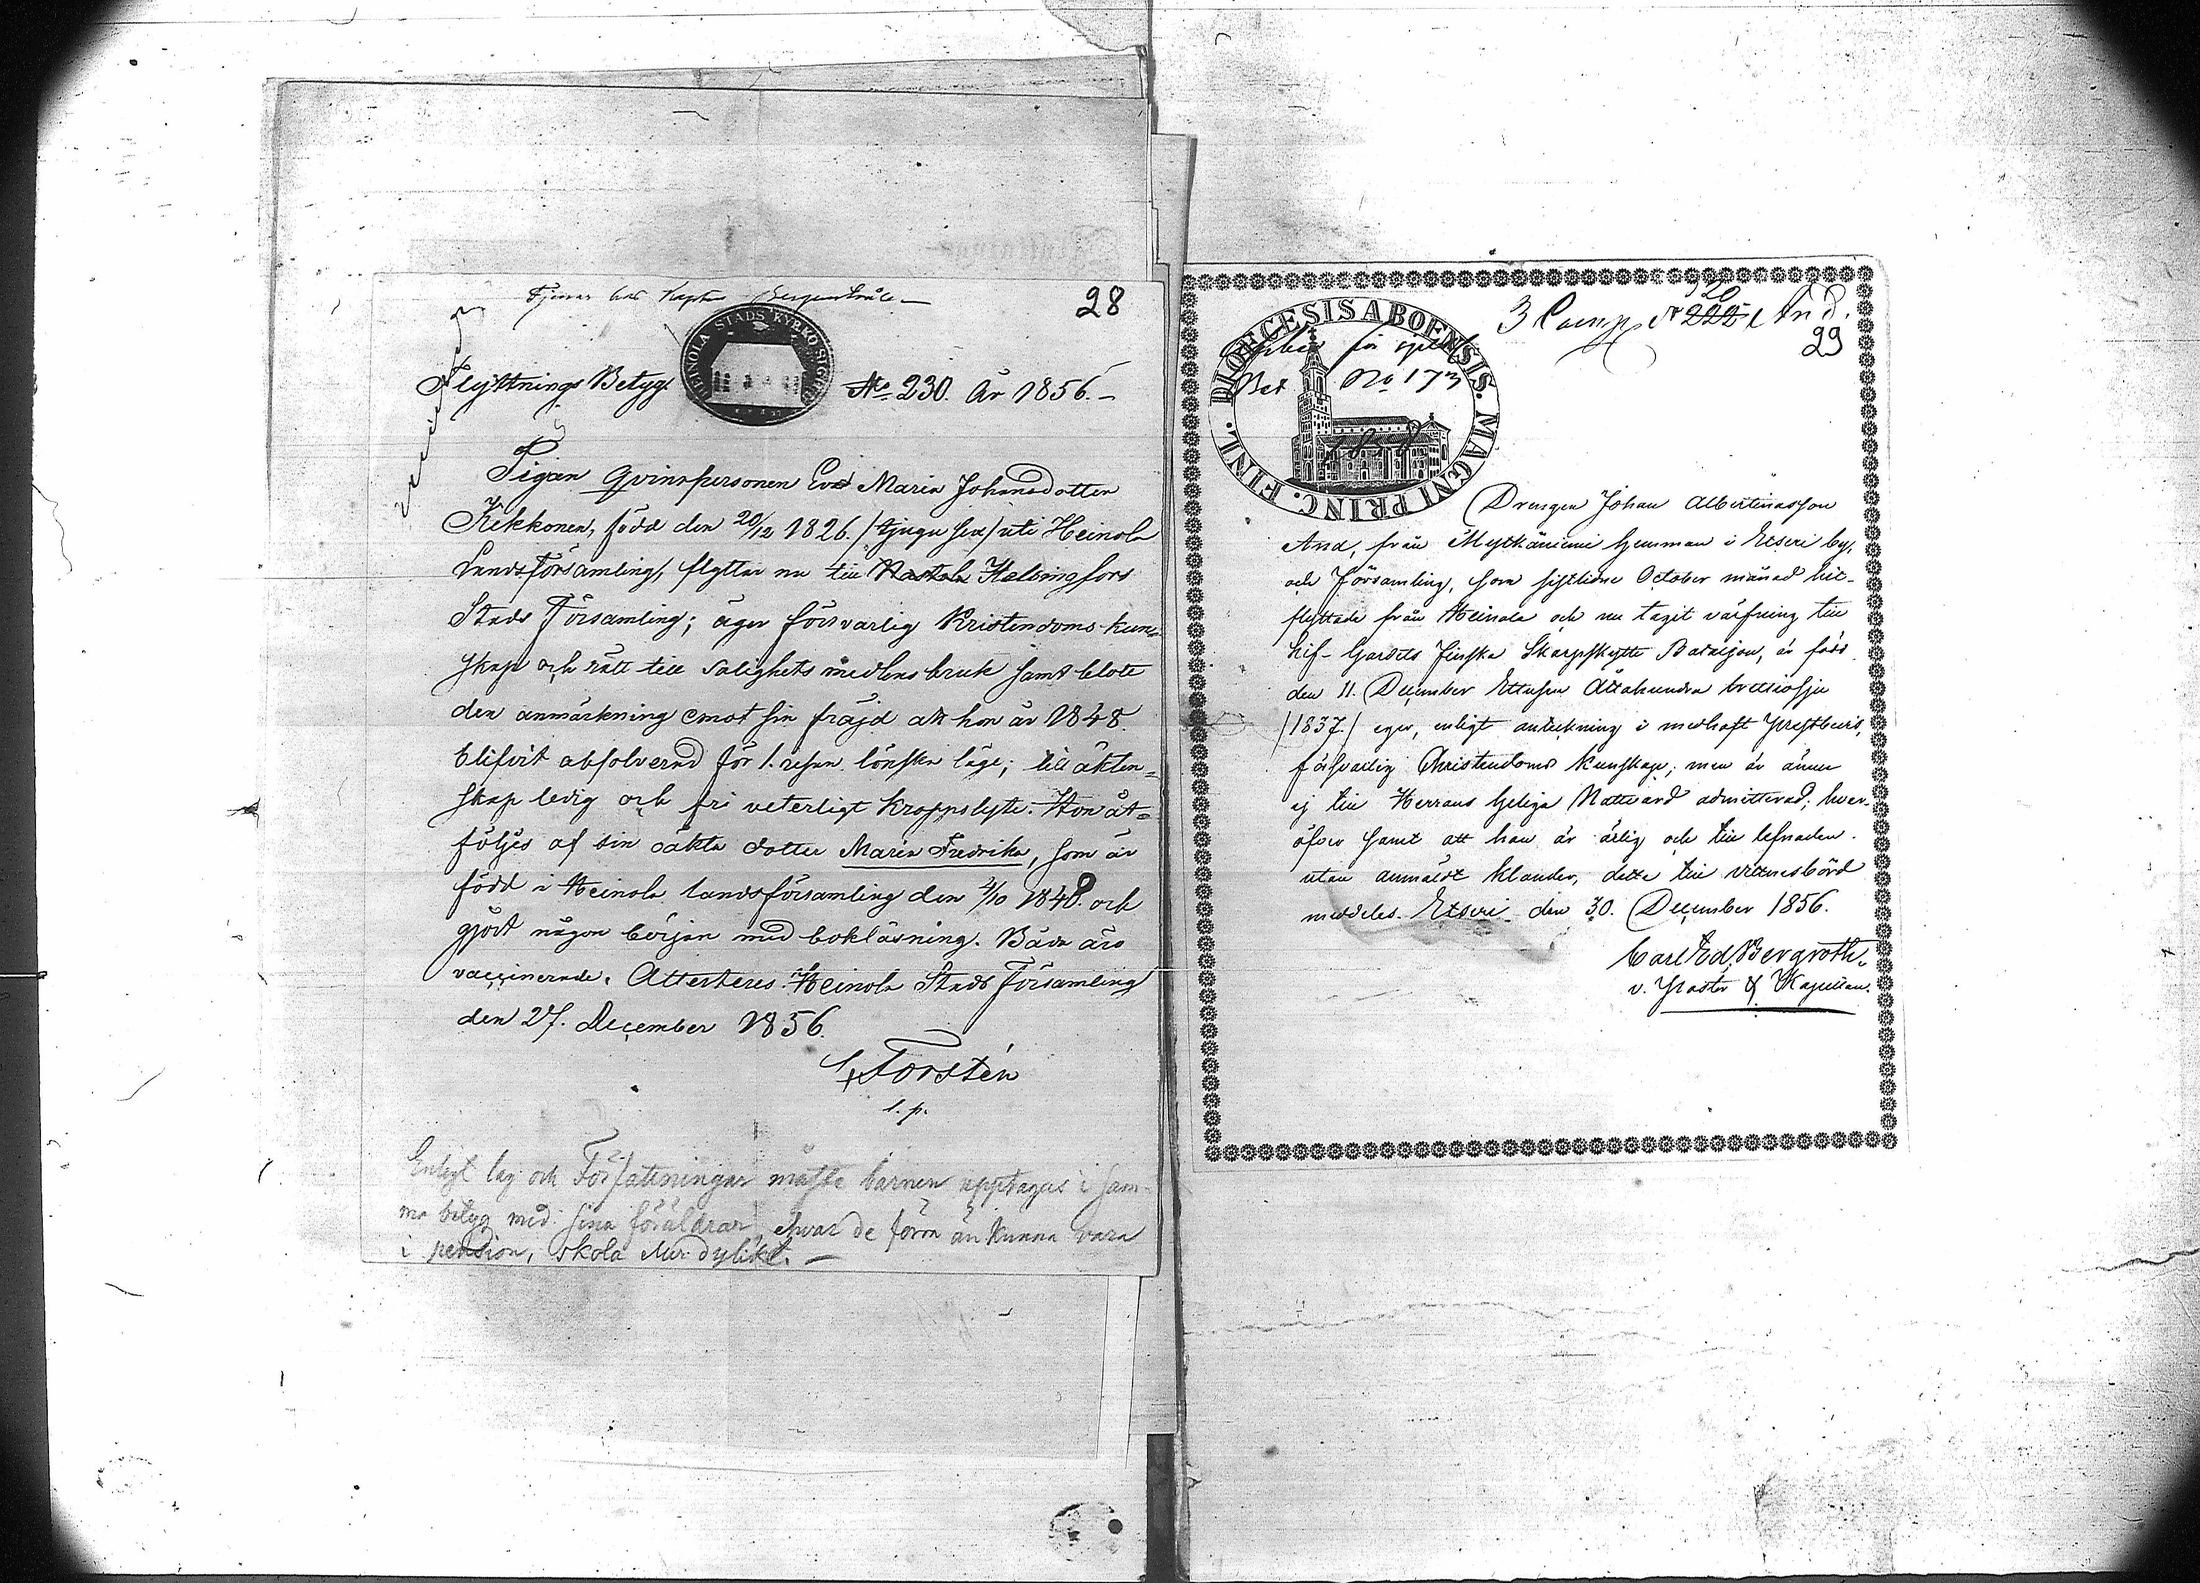 Tjenar hos Kapten Bergenstråle
28
HEINOLA STADS KYRKO SIGILL
Flyttnings Betyg. No 230. År 1856.-
Pigan Qvinspersonen Eva Maria Johansdotter
Kekkonen, född den 20/12 1826. /tjugu sex/ uti Heinola
Landsförsamling, flyttar nu till Nastola Helsingfors
Stads Församling; äger försvarlig Kristendoms kun-
skap och rätt till salighets medlens bruk samt blott
den anmärkning emot sin fräjd att hon är 1848.
blifvit absolverad för 1. resan lönska läge; till äkten=
skap ledig och fri veterligt kroppslyte. Hon åt=
följes af sin oäkta dotter Maria Fredrika, som är
född i Heinola landsförsamling den 4/10 1848. och
gjort någon början med bokläsning. Båda äro
vaccinerade. Attesteres. Heinola Stads Församling
den 27. December 1856.
Forstén
l. p.
Enligt lag och Författningar måste barnen upptagas i sam-
ma betyg med sina föräldrar, ehvar de förr än kunna vara
i pension, skola eller dylikt. -
3 Comp. N 222 20 And.
29
DIOECESIS ABOENSIS. MAGNI PRINC. FINL.
för
Bet No 173
1858
Drengen Johan Albertinasson
And, från Mytkäniemi hemman i Etseri by,
och Församling, som sistlidne October månad hit-
flyttade från Heinola och nu tagit värfning till
Lif-Gardets Finska Skarpskytte Bataljon, är född
den 11. December Ettusen Åttahundra trettiosju
/1837./ eger, enligt anteckning i medhaft Prestbevis,
försvarlig Christendoms kunskap; men är ännu
ej till Herrans heliga Nattvard admitterad; hvar-
öfver samt att han är ärlig och till lefnaden
utan anmäldt klander, detta till vittnesbörd
meddelas. Etseri den 30. December 1856.
Carl Ed. Bergroth.
v. Pastor & Kapellan.